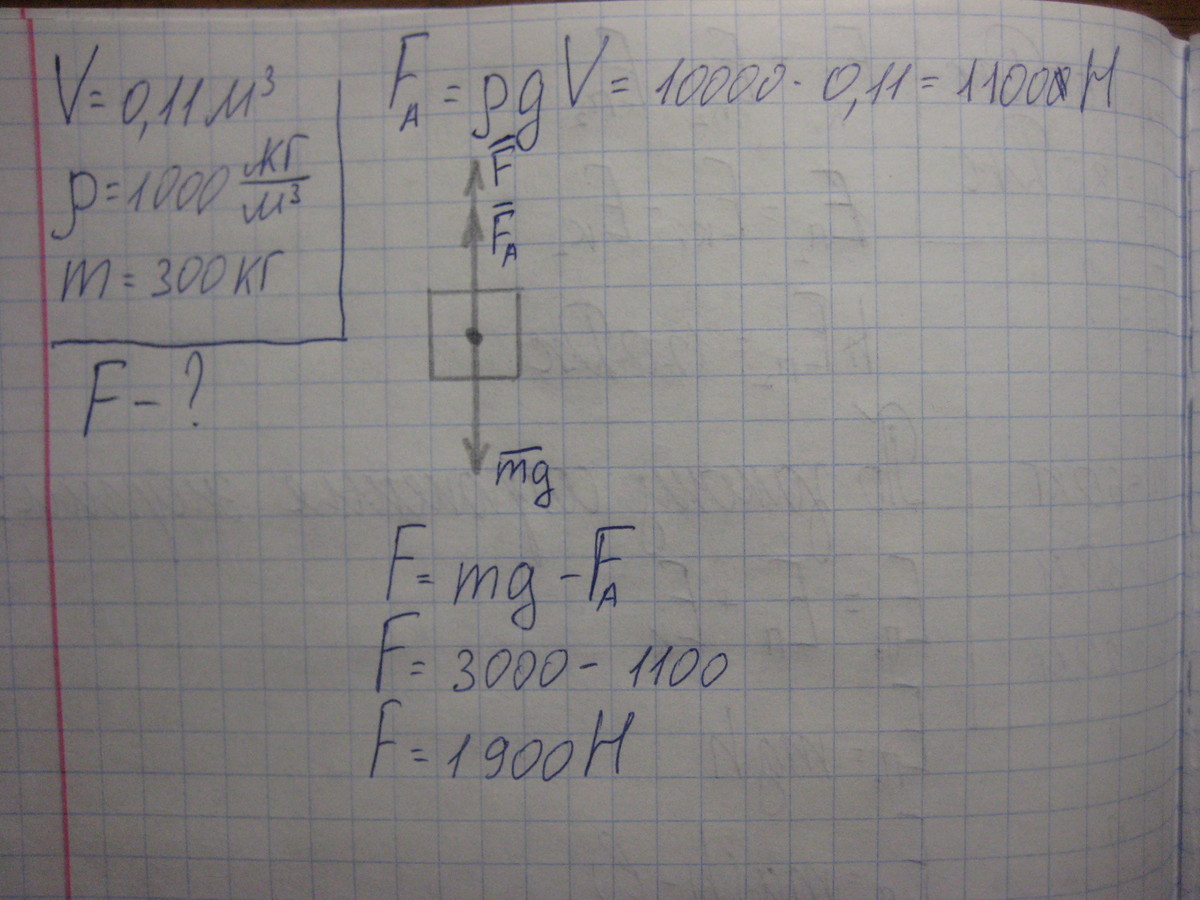 V = 0,11 м³
ρ = 1000 кг/м³
m = 300 кг
F – ?
F_A = ρgV = 10000 · 0,11 = 1100 Н
F̄
F̄_A
m̄g
F = mg – F_A
F = 3000 – 1100
F = 1900 Н